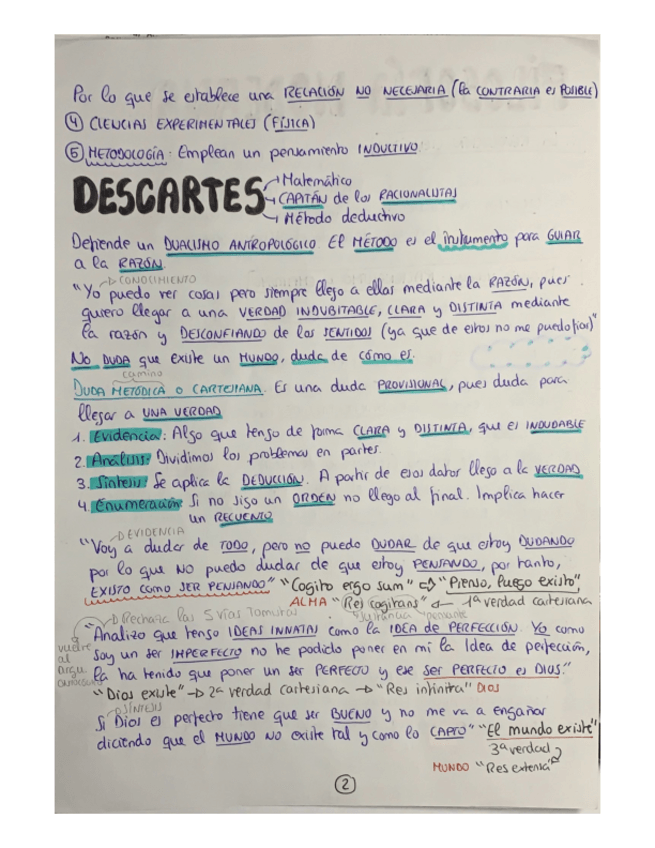 Por lo que se establece una RELACIÓN NO NECESARIA (la CONTRARIA ES POSIBLE)
④ CIENCIAS EXPERIMENTALES (FÍSICA)
⑤ METODOLOGÍA: Emplean un pensamiento INDUCTIVO.
DESCARTES
→ Matemático
→ CAPITÁN de los RACIONALISTAS
→ Método deductivo
Defiende un DUALISMO ANTROPOLÓGICO. El MÉTODO es el instrumento para GUIAR
a la RAZÓN.
→ CONOCIMIENTO
"Yo puedo ver cosas pero siempre llego a ellas mediante la RAZÓN, pues
quiero llegar a una VERDAD INDUBITABLE, CLARA y DISTINTA mediante
la razón y DESCONFIANDO de los SENTIDOS (ya que de estos no me puedo fiar)"
No DUDA que existe un MUNDO, duda de cómo es.
camino
DUDA METÓDICA O CARTESIANA. Es una duda PROVISIONAL, pues duda para
llegar a UNA VERDAD
1. Evidencia: Algo que tengo de forma CLARA y DISTINTA, que es INDUDABLE
2. Análisis: Dividimos los problemas en partes.
3. Síntesis: Se aplica la DEDUCCIÓN. A partir de esos datos llego a la VERDAD
4. Enumeración: Si no sigo un ORDEN no llego al final. Implica hacer
un RECUENTO
→ EVIDENCIA
"Voy a dudar de TODO, pero no puedo DUDAR de que estoy DUDANDO
por lo que NO puedo dudar de que estoy PENSANDO, por tanto,
EXISTO COMO SER PENSANDO" "Cogito ergo sum" ⇨ "Pienso, luego existo"
ALMA "Res cogitans" ← 1ª verdad cartesiana
sustancia pensante
→ Rechaza las 5 vías Tomistas
"Analizo que tengo IDEAS INNATAS como la IDEA de PERFECCIÓN. Yo como
soy un ser IMPERFECTO no he podido poner en mí la Idea de perfección,
la ha tenido que poner un ser PERFECTO y ese SER PERFECTO es DIOS."
vuelve
al
argu.
"Dios existe" → 2ª verdad cartesiana → "Res infinita" DIOS
→ SÍNTESIS
Si Dios es perfecto tiene que ser BUENO y no me va a engañar
diciendo que el MUNDO NO existe tal y como lo CAPTO" "El mundo existe"
3ª verdad
MUNDO "Res extensa"
②